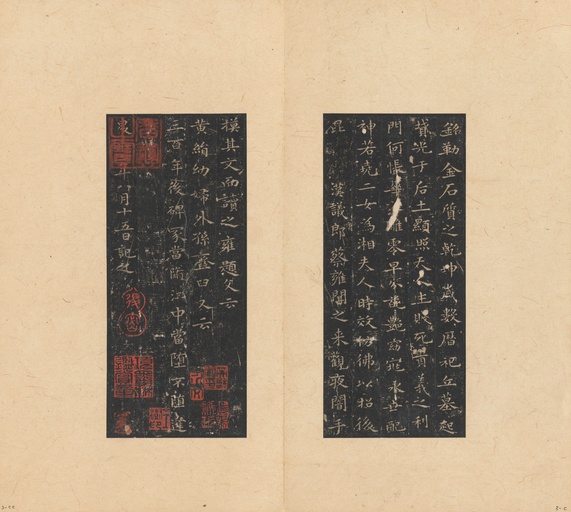 銘勒金石質之乾坤歲數曆祀丘墓起
墳光于后土顯照天人生賤死貴義之利
門何悵華雕零早分葩艷窈窕永世配
神若堯二女為湘夫人時效仿佛以招後
昆 漢議郎蔡雍聞之来觀夜闇手
摸其文而讀之雍題文云
黃絹幼婦外孫臼又云
三百年後碑冢當墮江中當墮不墮逢
年八月十五日記之